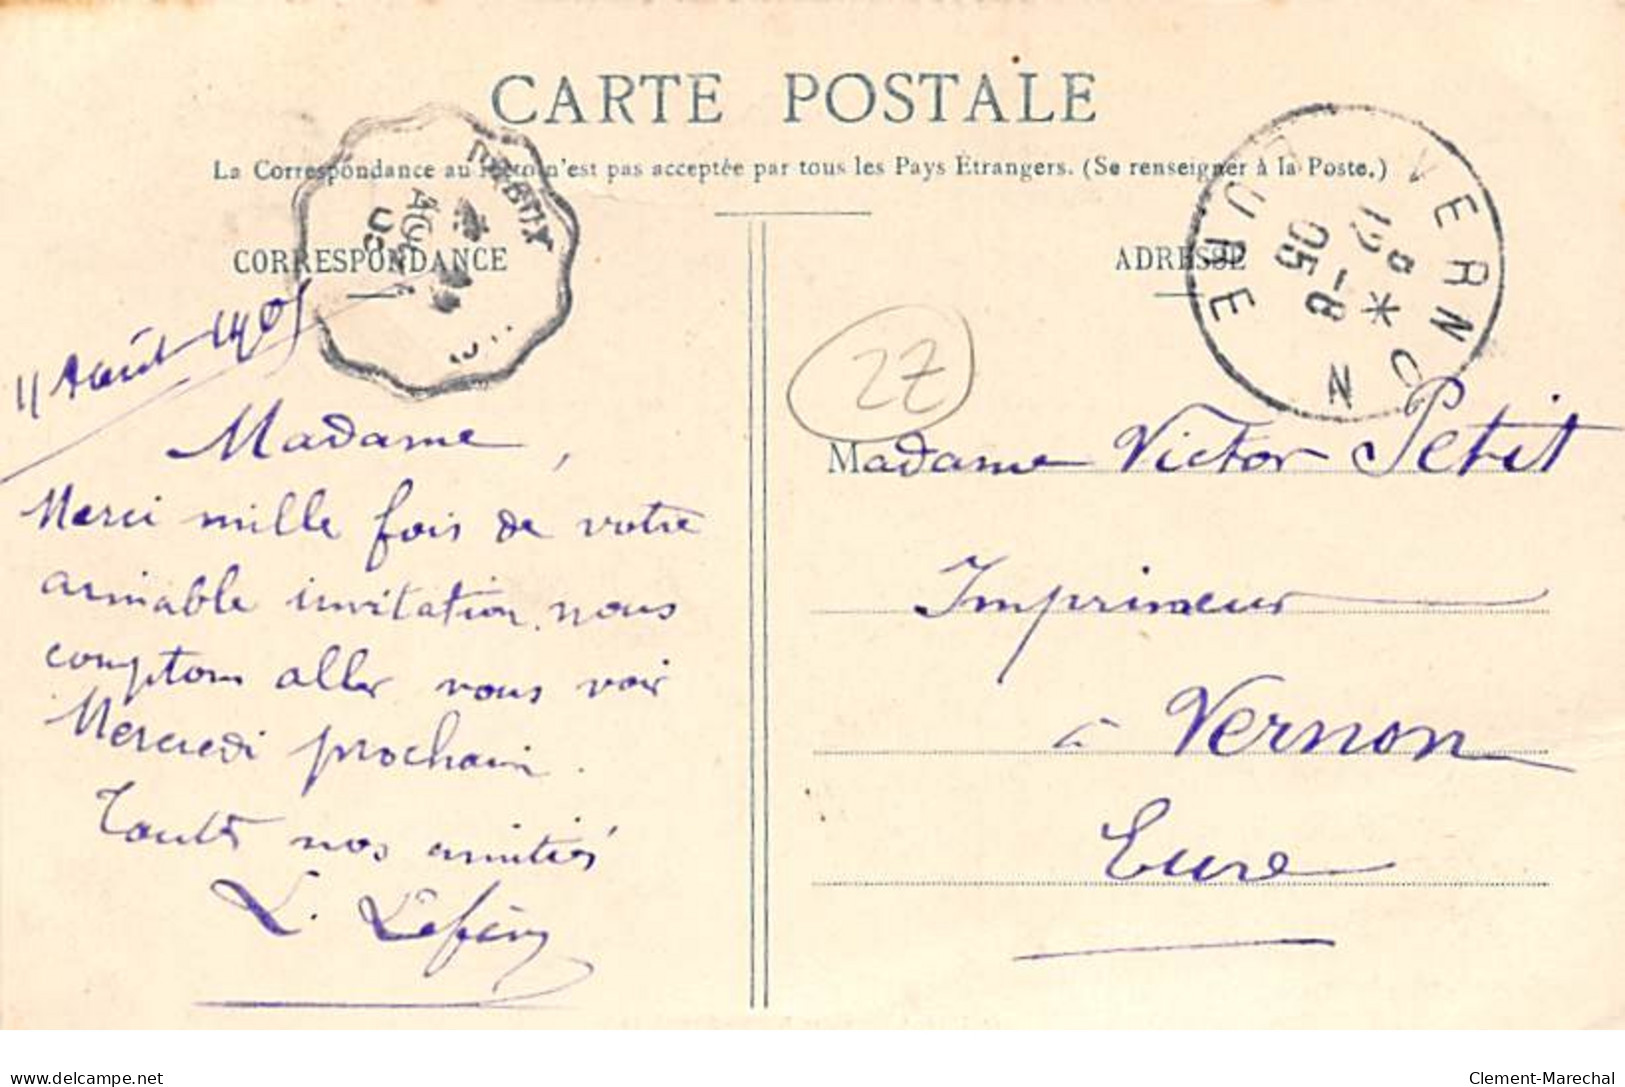 CARTE POSTALE
La Correspondance au recto n'est pas acceptée par tous les Pays Etrangers. (Se renseigner à la Poste.)
CORRESPONDANCE
11 Août 1905
Madame,
Merci mille fois de votre
aimable invitation. nous
comptons aller vous voir
Mercredi prochain.
Toutes nos amitiés
L.
DREUX
AOUT
05
ADRESSE
VERNON
EURE
12 -8
05
27
Madame Victor Petit
Imprimeur
à Vernon
Eure
delcampe.net
Clement-Marechal